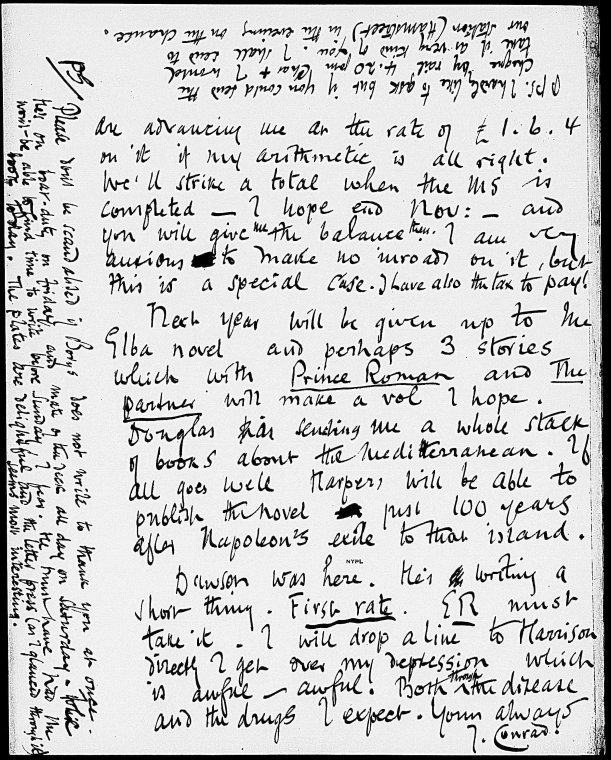 are advancing me at the rate of £ 1.6.4
on it if my arithmetic is all right.
We'll strike a total when the MS is
completed — I hope end Nov: — and
you will give me the balance then. I am very
anxious to make no inroads on it, but
this is a special case. I have also the tax to pay!
Next year will be given up to the
Elba novel and perhaps 3 stories
which with Prince Roman and The
Partner will make a vol I hope.
Douglas is sending me a whole stack
of books about the Mediterranean. If
all goes well Harpers will be able to
publish the novel just 100 years
after Napoleon's exile to that island.
NYPL
Dawson was here. He's writing a
short thing. First rate. ER must
take it. I will drop a line to Harrison
directly I get over my depression which
is awful — awful. Both through the disease
and the drugs I expect. Yours always
J. Conrad.
PS. I hardly like to ask but if you could send the
cheque by rail 4.20 pm Char + I would
take it as very kind of you. I shall send to
our station (Hamstreet) in the evening on the chance.
PS/
Please don't be scandalised if Borys does not write to thank you at once.
He's on boat-duty on Friday and mate of the deck all day on Saturday
won't be able to find time to write before Sunday I fear. He must have had the
book to-day. The plates are delightful and the letter press (as I glanced through it)
seems most interesting.